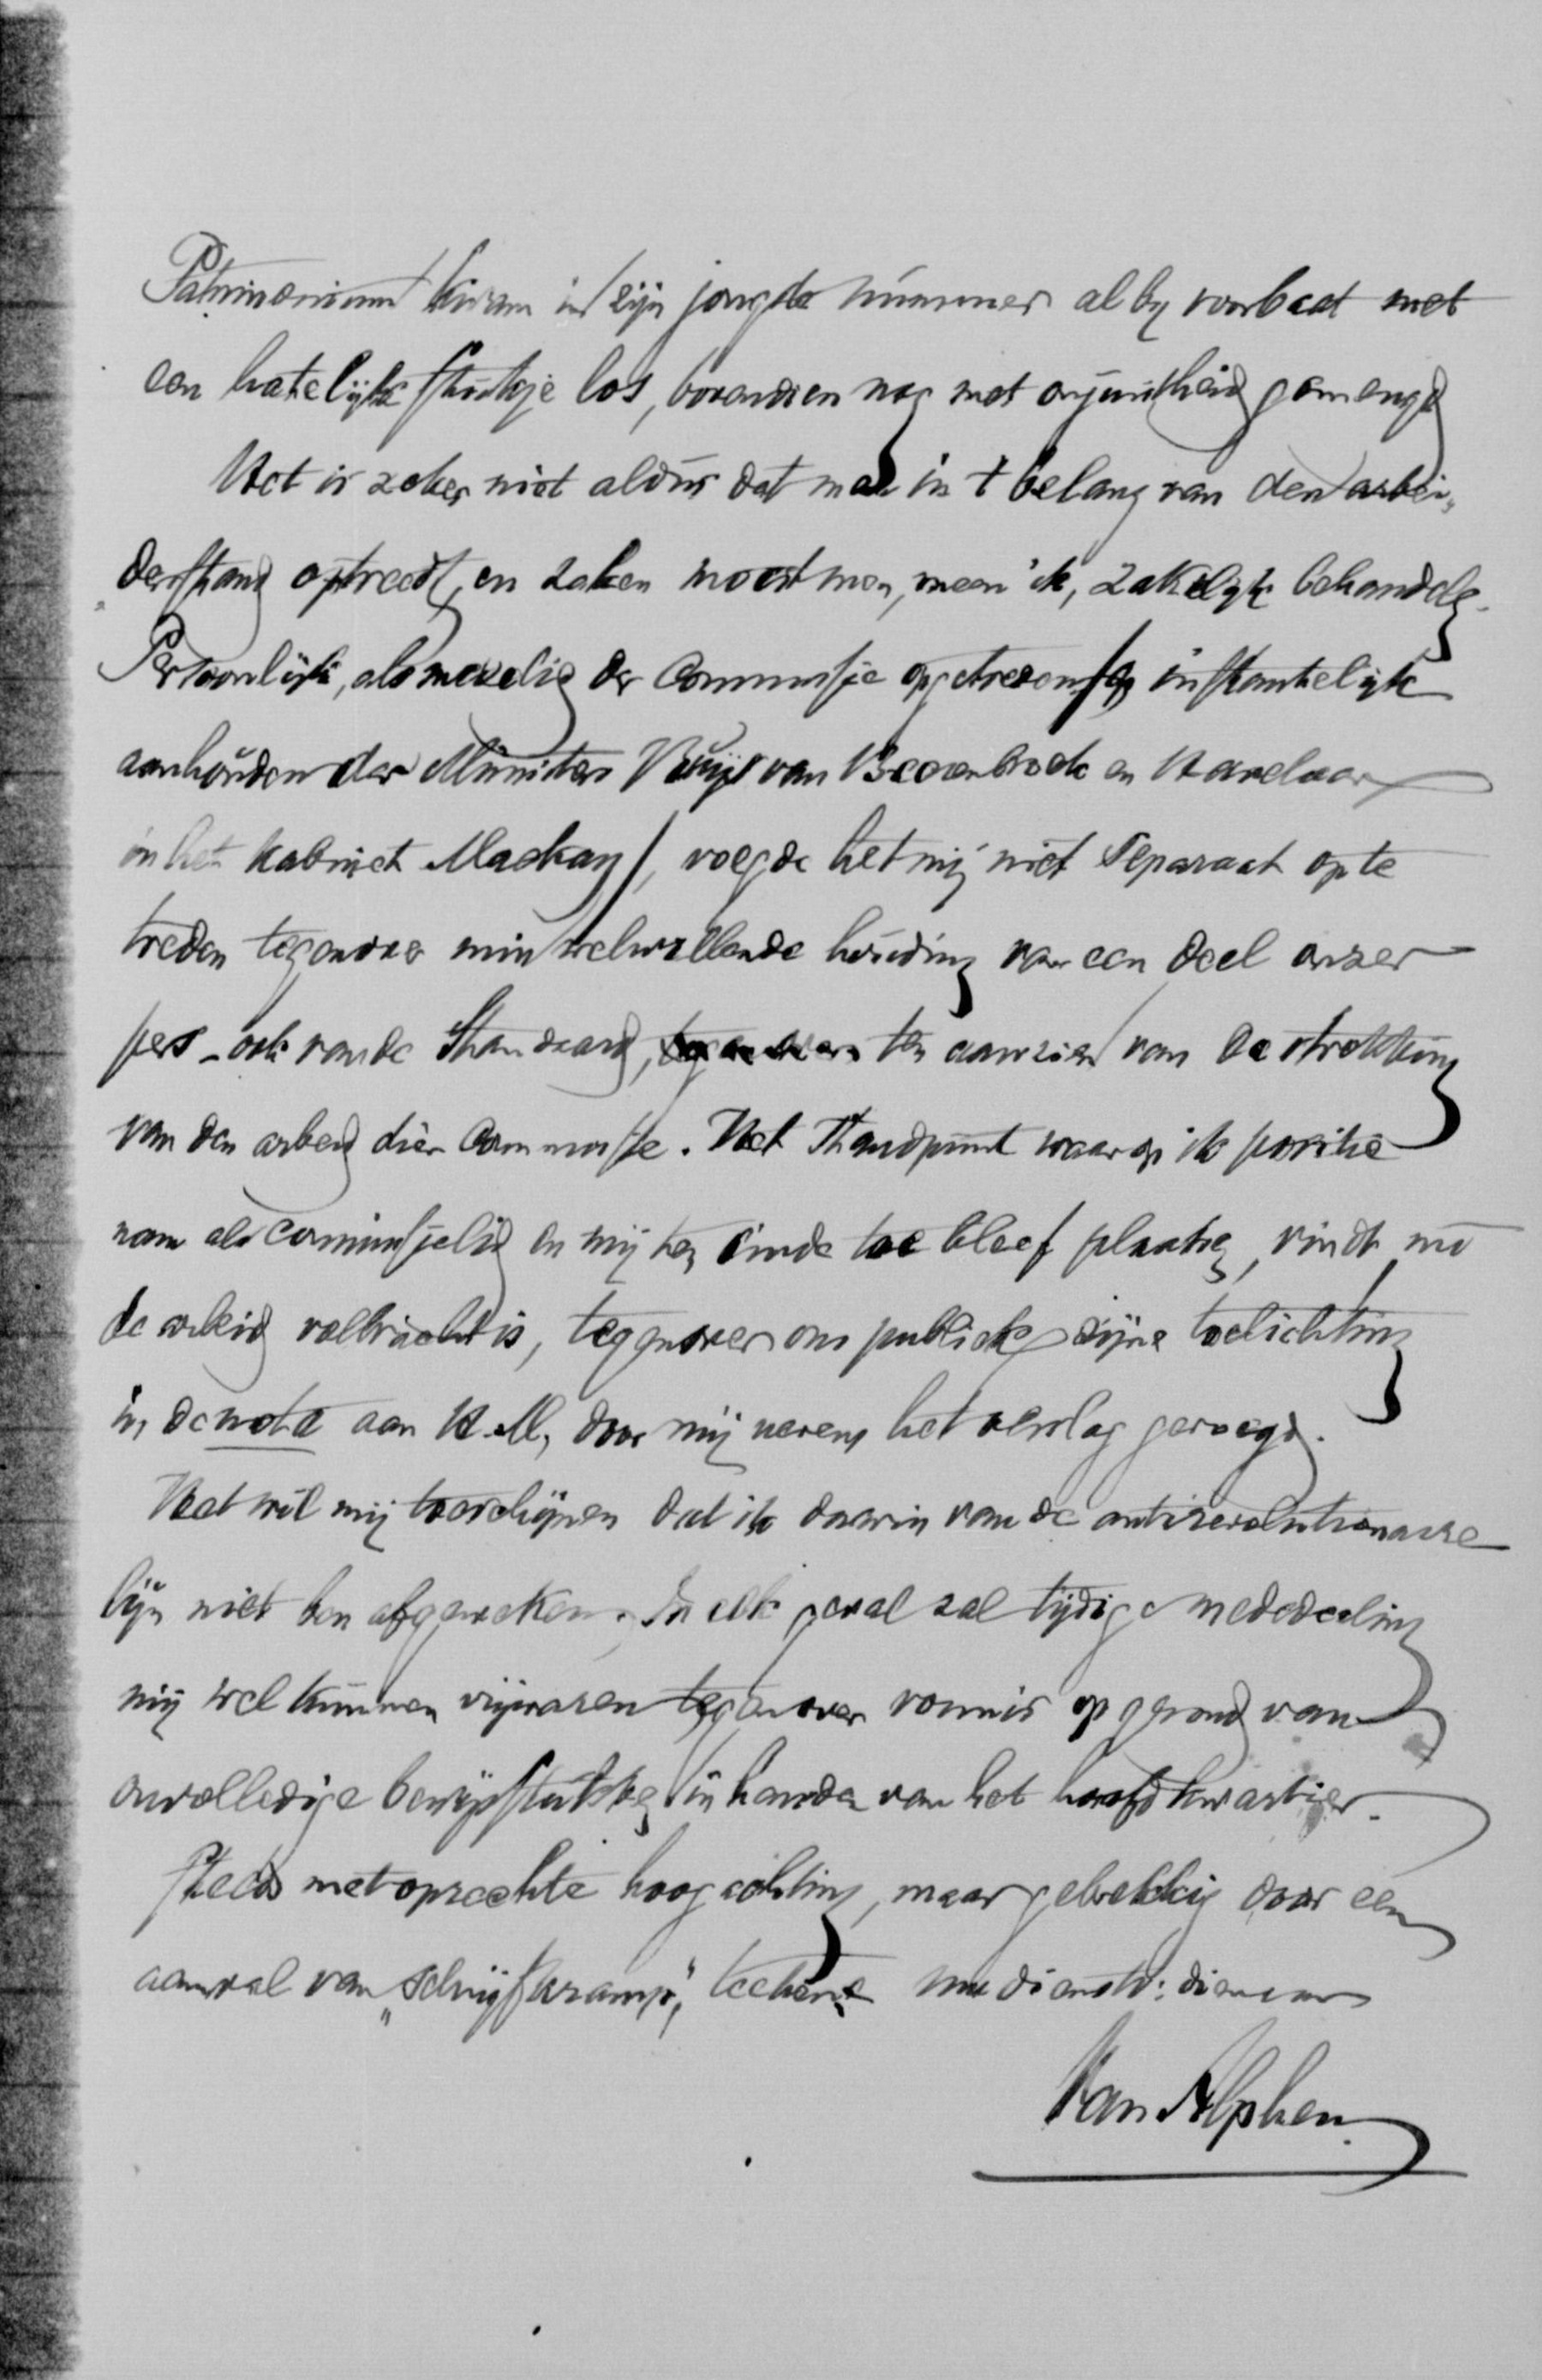 Patrimonium kwam in zijn jongste nummer al by voorbaat met
een hatelijk stukje los, bovendien nog met onjuistheid gemengd
Het is zeker niet aldus dat men in t belang van den arbei„
„derstand optreedt, en zaken moest men, meen ik, zakelijk behandelen.
Persoonlijk, als medelid der Commissie opgetreden op instantelijk
aanhouden der Ministers Ruijs van Beerenbroek en Havelaar
in het Kabinet Mackay, voegde het mij niet separaat op te
treden tegenover min welwillende houding van een deel onzer
pers – ook van de Standaard, tegenover ten aanzien van de strekking
van den arbeid dier Commissie. Het standpunt waarop ik positie
nam als commissielid en mij ten einde toe bleef plaatsen, vindt nu
de arbeid volbracht is, tegenover ons publiek zijne toelichting
in de nota aan H.M., door mij nevens het verslag gevoegd.
Het wil mij toeschijnen dat ik daarin van de antirevolutionaire
lijn niet ben afgeweken. In elk geval zal tijdige mededeeling
mij wel kunnen vrijwaren tegenover vonnis op grond van
onvolledige bewijsstukken in handen van het hoofdkwartier.
Steeds met oprechte hoogachting, maar gebrekkig door een
aanval van „schrijfkramp”, teekent uw dienstv: dienaar
Van Alphen